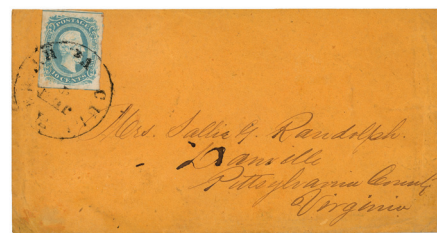 POSTAGE
Mrs. Sallie G. Randolph.
Danville
Pittsylvania County
Virginia